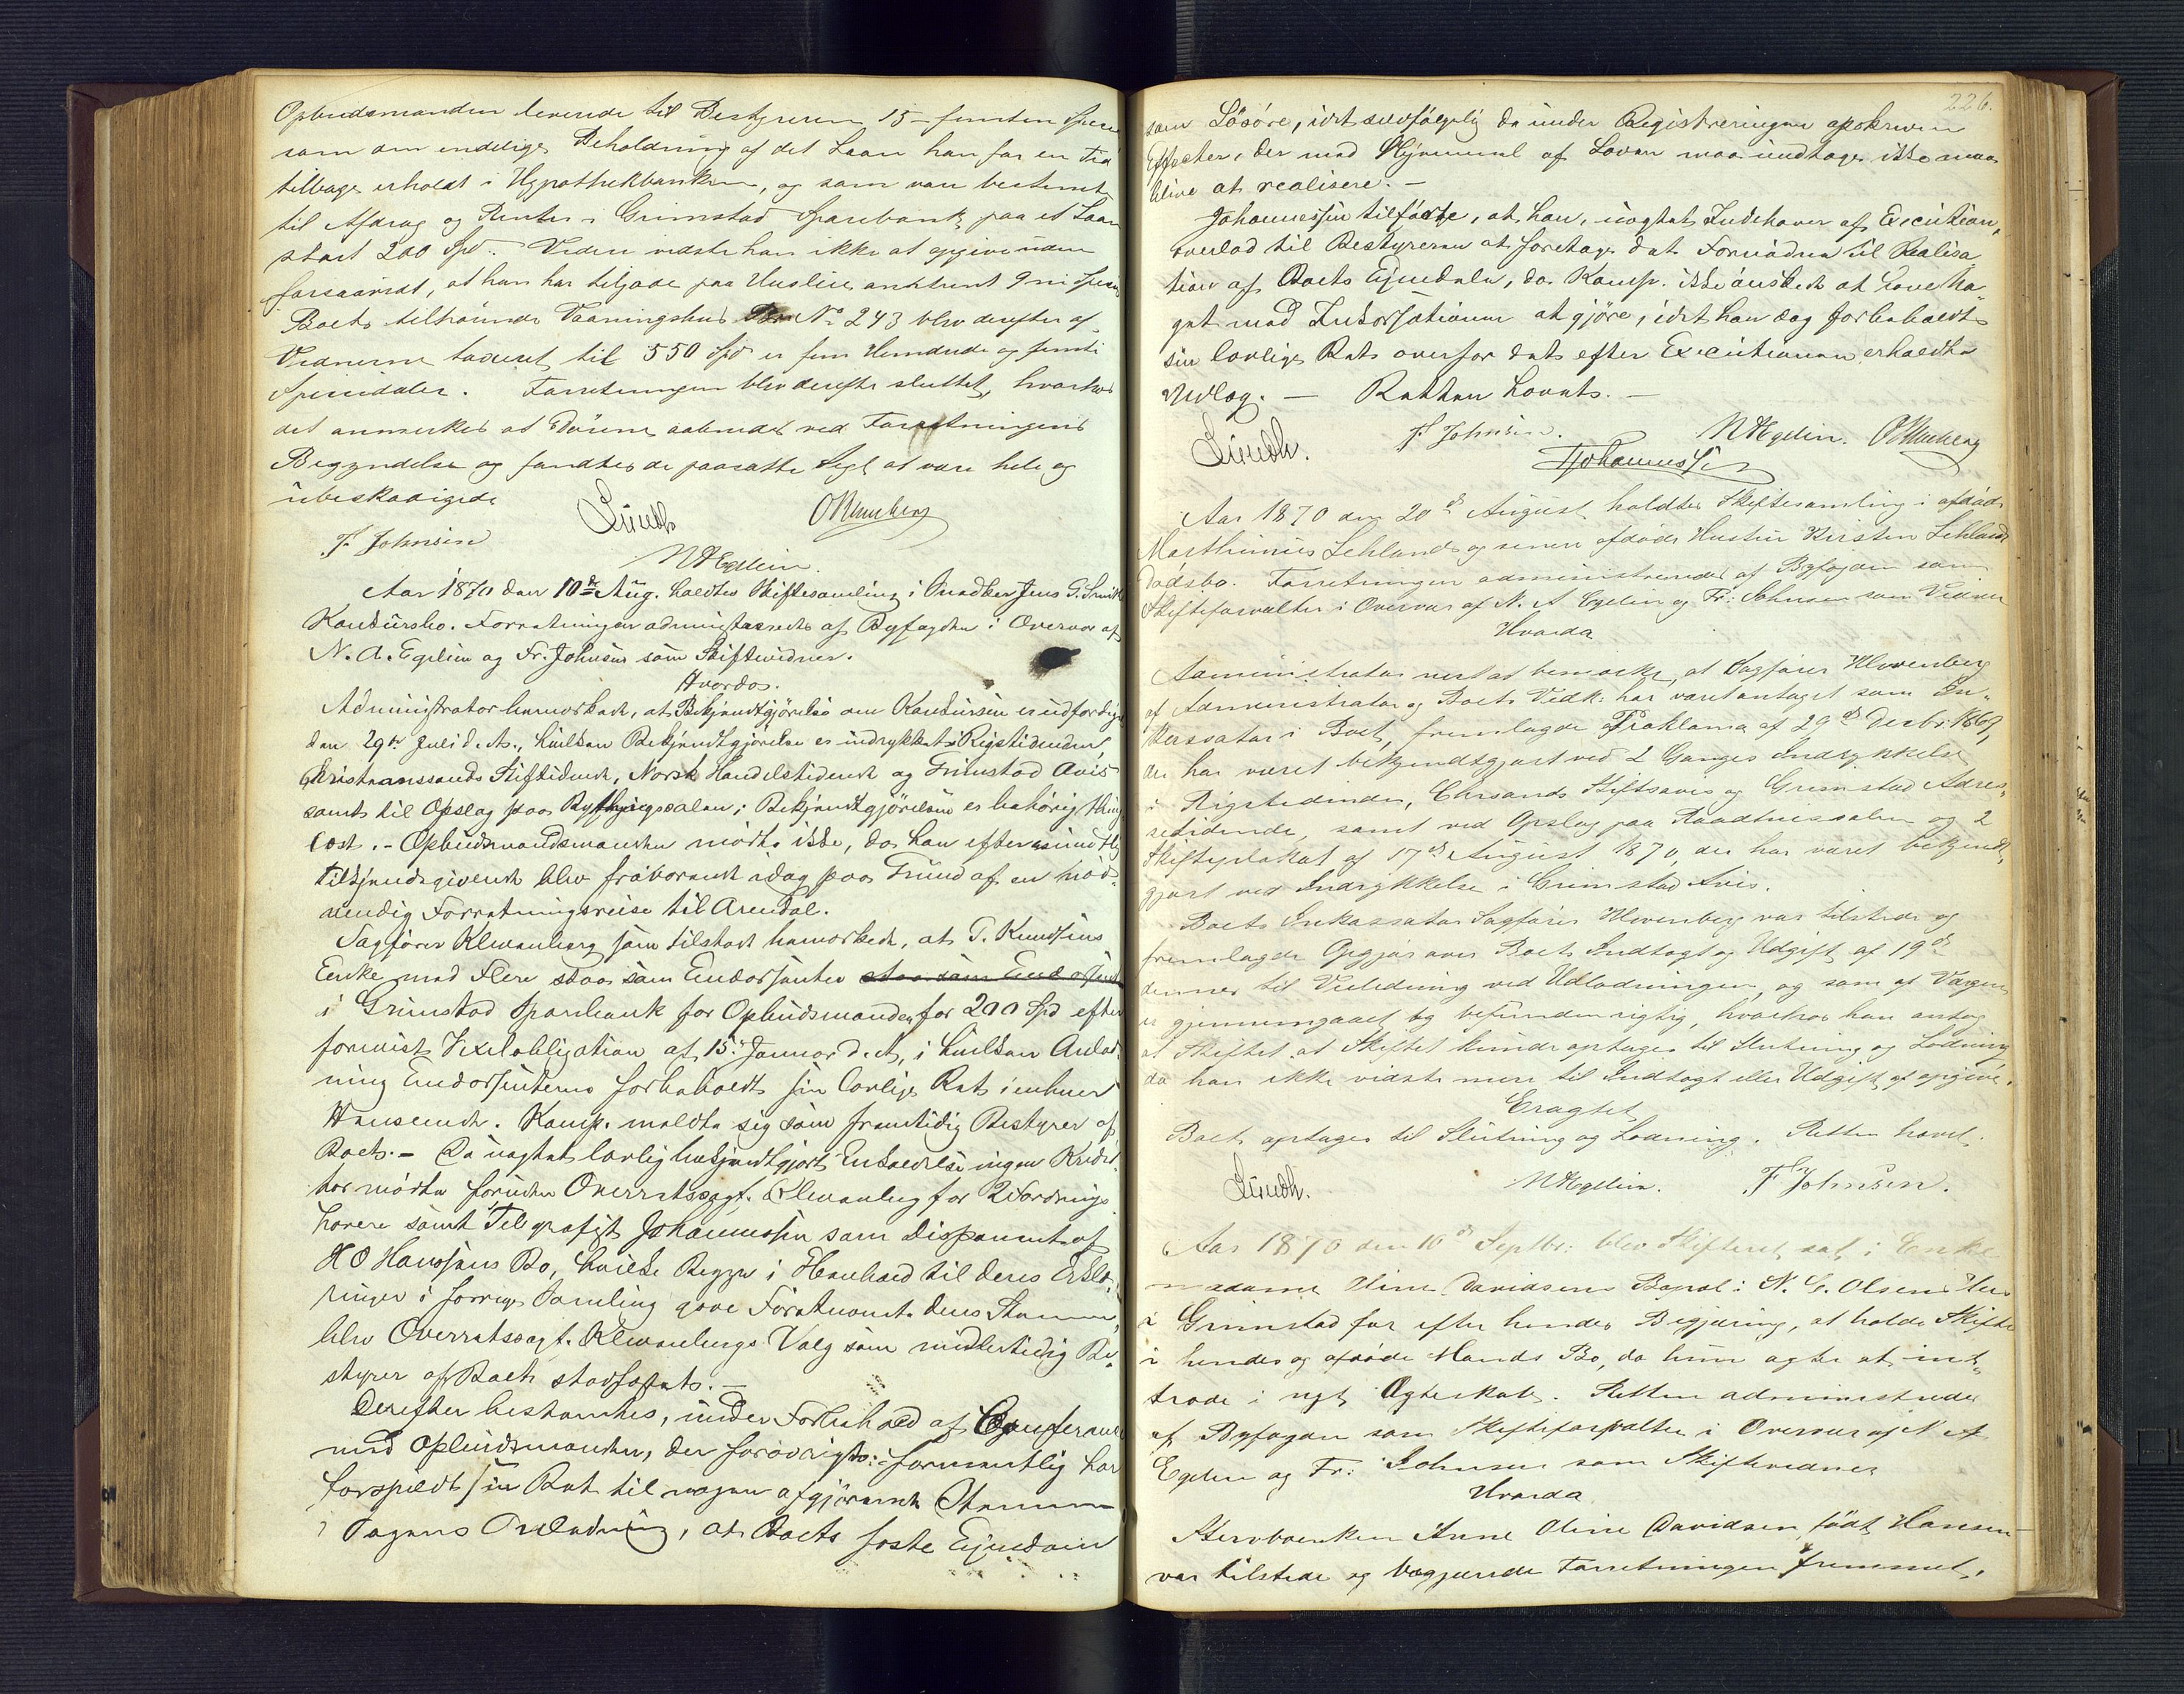 Opbudsmanden leverede til Bestyreren 15 – femten Specd
som den endelige Beholdning af det Laan han for en Tid
tilbage erholdt i Hypothekbanken, og som var bestemt
til Afdrag og Renter i Grimstad Sparebank paa et Laan
stort 200 Spd. Videre vidste han ikke at opgive uden
forsaavidt, at han har tilgode paa Huusleie omtrent 9 ni Specd
Boets tilhørende Vaaningshus No 243 blev derefter af
Vidnerne taxeret til 550 Spd er fem Hundrede og femti
Speciedaler. Forretningen blev derefter sluttet, hvorhos
det anmerkes at Dørene aabnedes ved Forretningens
Begyndelse og fandtes de paasatte Segl at være hele og
ubeskadigede
F. Johnsen Lundh O Klevenberg
N A Egelien.
Aar 1870 den 10de Aug. holdtes Skiftesamling i Snedker Jens G. Smith
Konkursbo. Forretningen administreredes af Byfogden i Overvær af
N. A. Egelien og Fr. Johnsen som Skiftevidner.
Hvorda.
Administrator bemærkede, at Bekjendtgjørelse om Konkursen er udfærdiget
den 29de Juli d. A., hvilken Bekjendtgjørelse er indrykket i Rigstidenden
Christianssands Stiftstidende, Norsk Handelstidende og Grimstad Avis
samt til Opslag paa Bythingssalen; Bekjendtgjørelsen er behørig thing-
læst. – Opbudsmanden mødte ikke, da han efter mundtlig
Tilkjendegivende blev fraværende idag paa Grund af en nød-
vendig Forretningsreise til Arendal.
Sagfører Klevenberg som tilstede bemærkede, at T. Knudsens
Enke med Flere staa som Endorsenter staa som Endorsent
i Grimstad Sparebank for Opbudsmanden for 200 Spd efter
formist Vexelobligation af 15. Januar d. A, i hvilken Anled-
ning Endorsenterne forbeholdt sin lovlige Ret i enhver
Henseende. Komp. meldte sig som fremtidig Bestyrer af
Boet. – Da uagtet lovlig bekjendtgjort Indkaldelse ingen Kredi-
tor mødte foruden Overretssagf. Klevenberg for 2 Fordrings-
havere samt Telegrafist Johannessen som Disponent af
H O Hanssens Bo, hvilke Begge i Henhold til deres Erklæ-
ringer i forrige Samling gave Førstnævnte deres Stemme,
blev Overretssagf. Klevenbergs Valg som midlertidig Be-
styrer af Boet stadfæstet. –
Derefter bestemtes, under Forbehold af Conferance
med Opbudsmanden, der forøvrigt: formentlig har
forspildt sin Ret til nogen afgjørende Stemme
i Sagens Anledning, at Boets faste Eiendom
226.
som Løsøre, idet selvfølgelig de under Registreringen opskrevne
Effecter, der med Hjemmel af Loven maa undtages ikke maa
blive at realisere. –
Johannessen tilføiede, at han, uagtet Indehaver af Execution,
overlod til Bestyreren at foretage det Fornødne til Realisa-
tion af Boets Eiendele, da Komp. ikke ønskede at have No-
get med Inkorsationen at gjøre, idet han dog forbeholdt
sin lovlige Ret overfor det efter Executionen erholdte
Udlæg. – Retten hævet. –
Lundh. F. Johnsen. N A Egelien. O Klevenberg
T Johannessen
Aar 1870 den 20de August holdtes Skiftesamling i afdøde
Marthinius Lehlands og senere afdøde Hustru Kirsten Lehland
Dødsbo. Forretningen administreredes af Byfogden som
Skifteforvalter i Overvær af N. A Egelien og Fr: Johnsen som Vidner
Hvorda
Administrator nest at bemærke, at Sagfører Klevenberg
af Administrator og Boets Vedk: har været antaget som In-
kassator i Boet, fremlagde Proklama af 29de Decbr. 1869,
der har været bekjendtgjort ved 2 Ganges Indrykkelse
i Rigstidende, Chrsands Stiftsavis og Grimstad Adres-
setidende, samt ved Opslag paa Raadhuussalen og 2
Skifteplakat af 17de August 1870, der har været bekjendt-
gjort ved Indrykkelse i Grimstad Avis.
Boets Inkassator Sagfører Klevenberg var tilstede og
fremlagde Opgjør over Boets Indtægt og Udgift af 19de
dennes til Veiledning ved Udlodningen, og som af Værgen
er gjennemgaaet og befunden rigtig, hvorhos han antog
at Skiftet at Skiftet kunde optages til Slutning og Lodning
da han ikke vidste mere til Indtægt eller Udgift at opgive.
Eragtet
Boet optages til Slutning og Lodning. Retten hævet.
Lundh. N A Egelien. F Johnsen.
Aar 1870 den 10de Septbr: blev Skifteret sat i Enke
madame Oline Davidsens Bopæl i N. C. Olsens Hus
i Grimstad for efter hendes Begjæring, at holde Skifte
i hendes og afdøde Mands Bo, da hun agter at ind-
træde i nyt Ægteskab. Retten administreredes
af Byfogden som Skifteforvalter i Overvær af N A
Egelien og Fr: Johnsen som Skiftevidner
Hvorda
Stervboenken Anne Oline Davidsen, født Hansen
var tilstede og begjærede Forretningen fremmet.